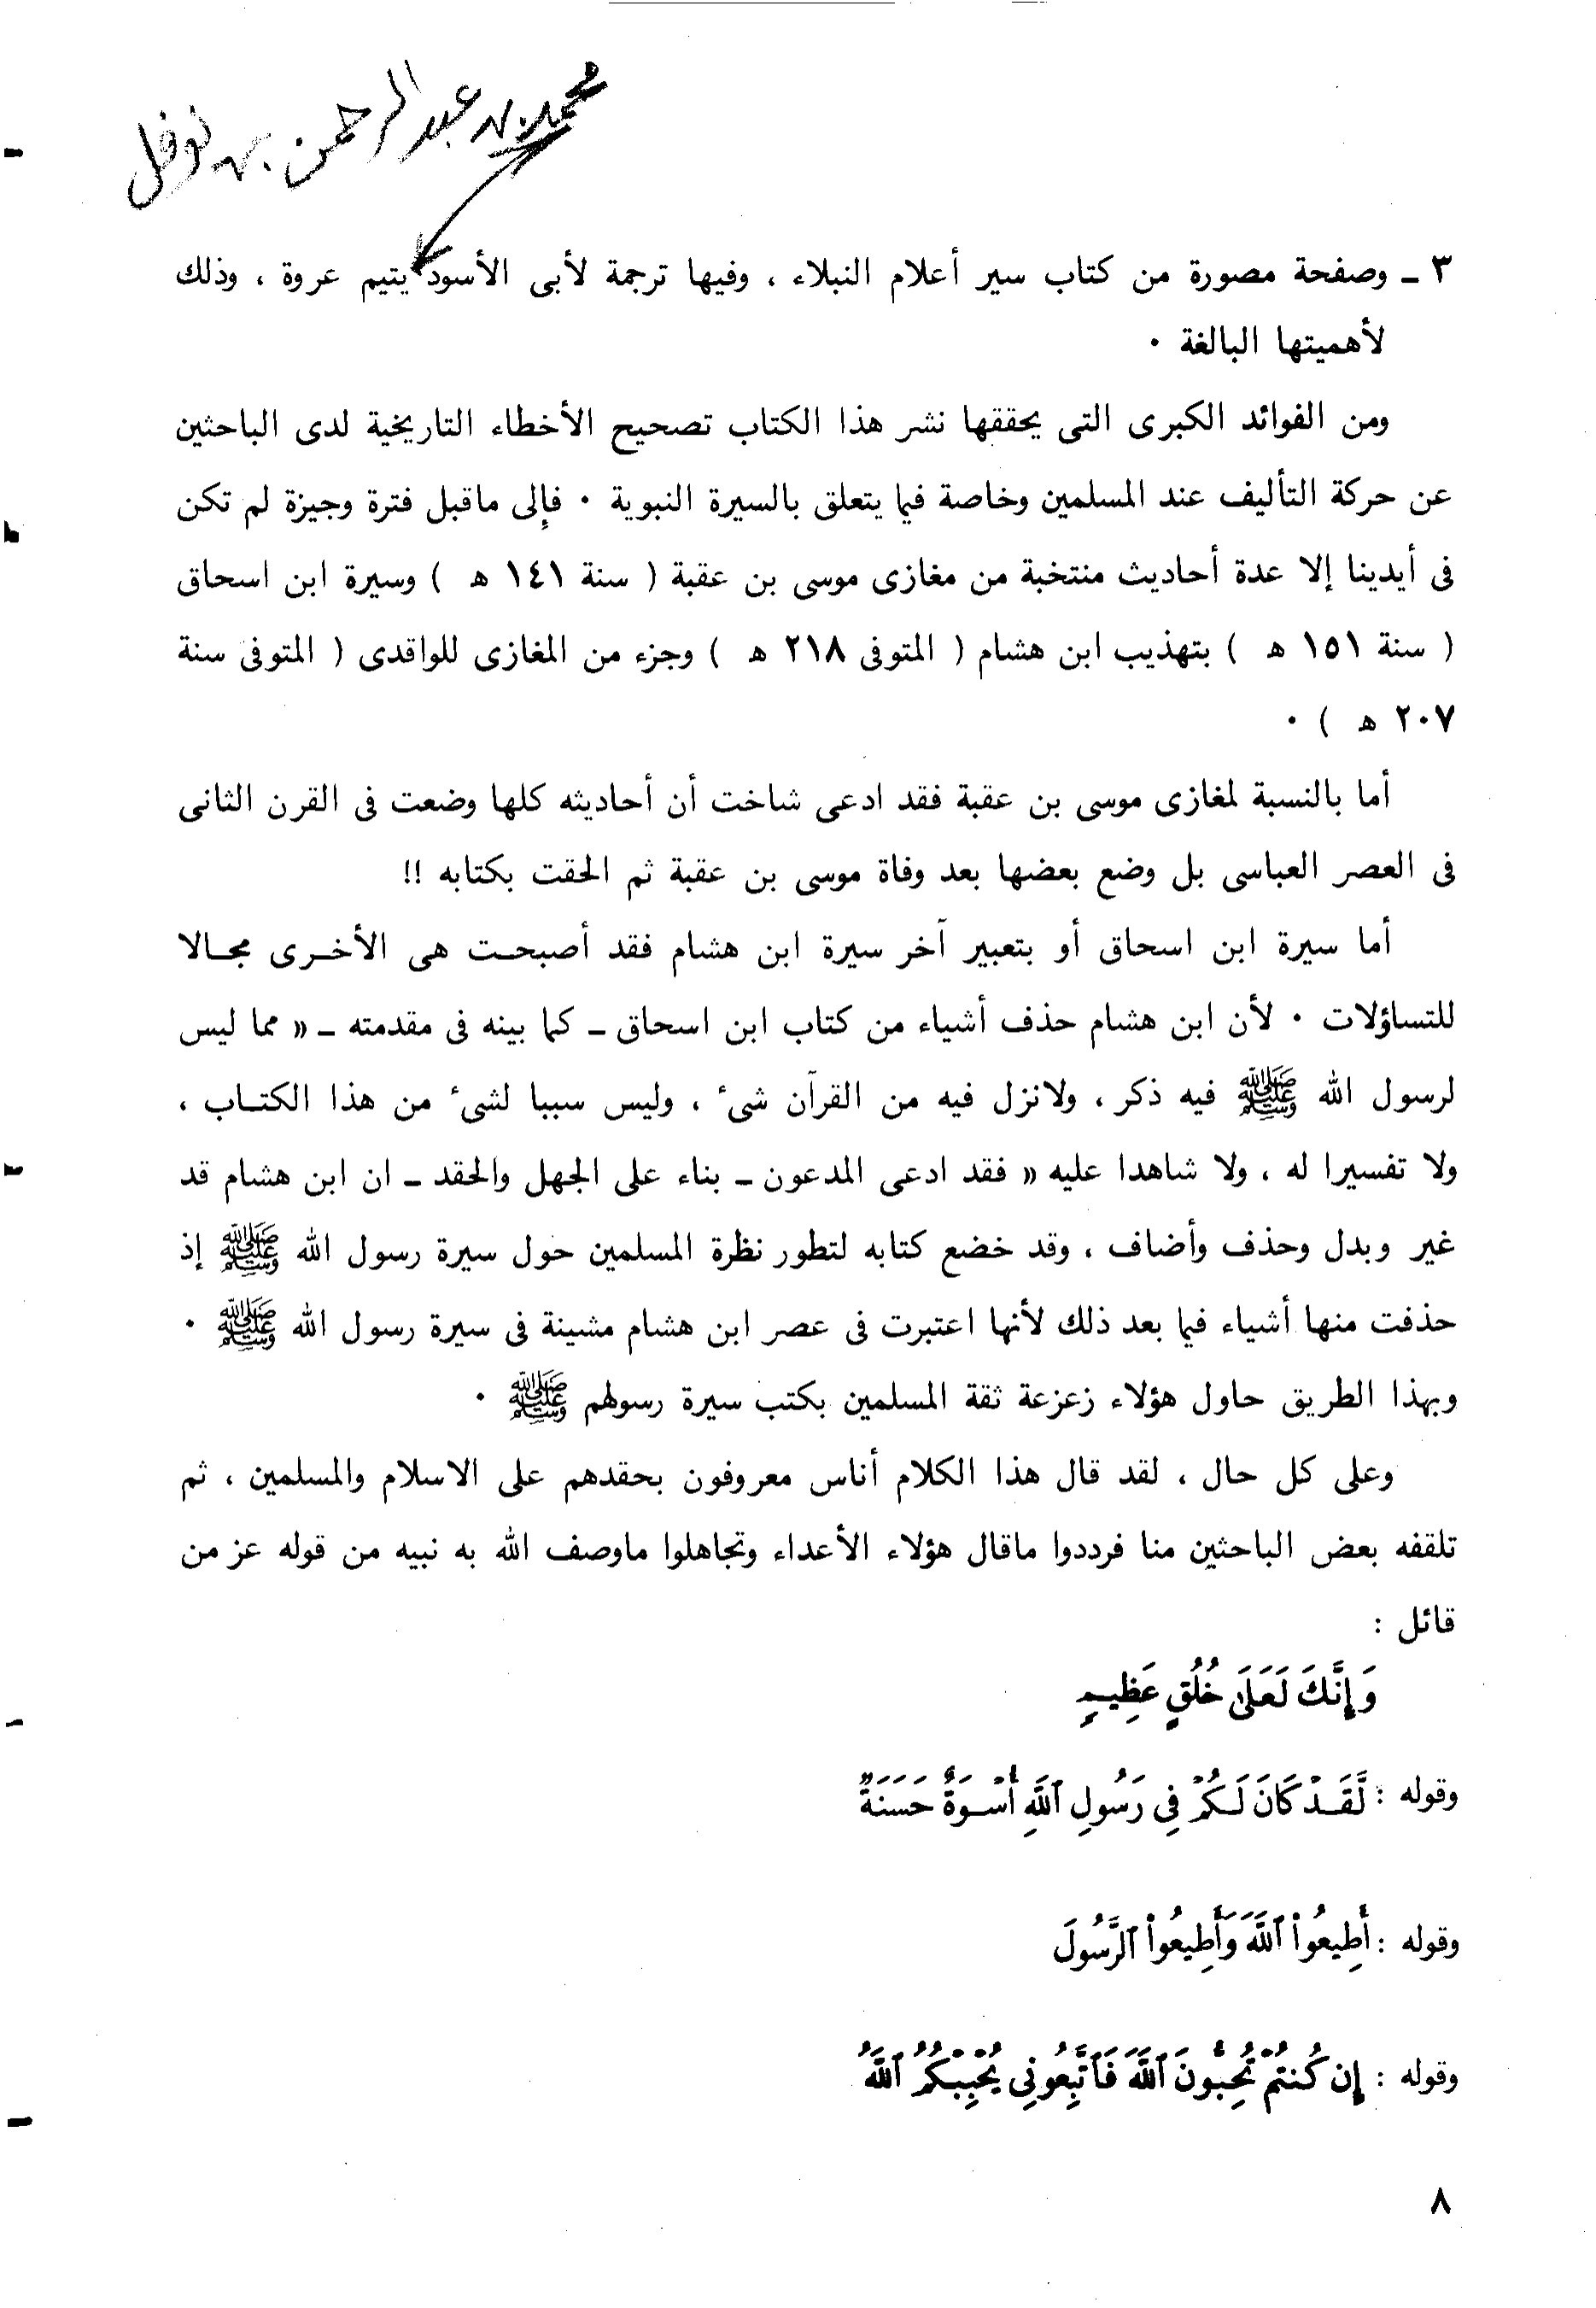 محمد بن عبد الرحمن بن نوفل
٣ ــ وصفحة مصورة من كتاب سير أعلام النبلاء ، وفيها ترجمة لأبى الأسود يتيم عروة ، وذلك
لأهميتها البالغة ٠
ومن الفوائد الكبرى التى يحققها نشر هذا الكتاب تصحيح الأخطاء التاريخية لدى الباحثين
عن حركة التأليف عند المسلمين وخاصة فيما يتعلق بالسيرة النبوية ٠ فإلى ماقبل فترة وجيزة لم تكن
فى أيدينا إلا عدة أحاديث منتخبة من مغازى موسى بن عقبة ( سنة ١٤١ هـ ) وسيرة ابن اسحاق
( سنة ١٥١ هـ ) بتهذيب ابن هشام ( المتوفى ٢١٨ هـ ) وجزء من المغازى للواقدى ( المتوفى سنة
٢٠٧ هـ ) ٠
أما بالنسبة لمغازى موسى بن عقبة فقد ادعى شاخت أن أحاديثه كلها وضعت فى القرن الثانى
فى العصر العباسى بل وضع بعضها بعد وفاة موسى بن عقبة ثم الحقت بكتابه !!
أما سيرة ابن اسحاق أو بتعبير آخر سيرة ابن هشام فقد أصبحت هى الأخرى مجالا
للتساؤلات ٠ لأن ابن هشام حذف أشياء من كتاب ابن اسحاق ــ كما بينه فى مقدمته ــ « مما ليس
لرسول الله ﷺ فيه ذكر ، ولانزل فيه من القرآن شىء ، وليس سببا لشىء من هذا الكتاب ،
ولا تفسيرا له ، ولا شاهدا عليه « فقد ادعى المدعون ــ بناء على الجهل والحقد ــ ان ابن هشام قد
غير وبدل وحذف وأضاف ، وقد خضع كتابه لتطور نظرة المسلمين حول سيرة رسول الله ﷺ إذ
حذفت منها أشياء فيما بعد ذلك لأنها اعتبرت فى عصر ابن هشام مشينة فى سيرة رسول الله ﷺ ٠
وبهذا الطريق حاول هؤلاء زعزعة ثقة المسلمين بكتب سيرة رسولهم ﷺ ٠
وعلى كل حال ، لقد قال هذا الكلام أناس معروفون بحقدهم على الاسلام والمسلمين ، ثم
تلقفه بعض الباحثين منا فرددوا ماقال هؤلاء الأعداء وتجاهلوا ماوصف الله به نبيه من قوله عز من
قائل :
وَإِنَّكَ لَعَلَىٰ خُلُقٍ عَظِيمٍ
وقوله : لَّقَدْ كَانَ لَكُمْ فِى رَسُولِ ٱللَّهِ أُسْوَةٌ حَسَنَةٌ
وقوله : أَطِيعُواْ ٱللَّهَ وَأَطِيعُواْ ٱلرَّسُولَ
وقوله : إِن كُنتُمْ تُحِبُّونَ ٱللَّهَ فَٱتَّبِعُونِى يُحْبِبْكُمُ ٱللَّهُ
٨